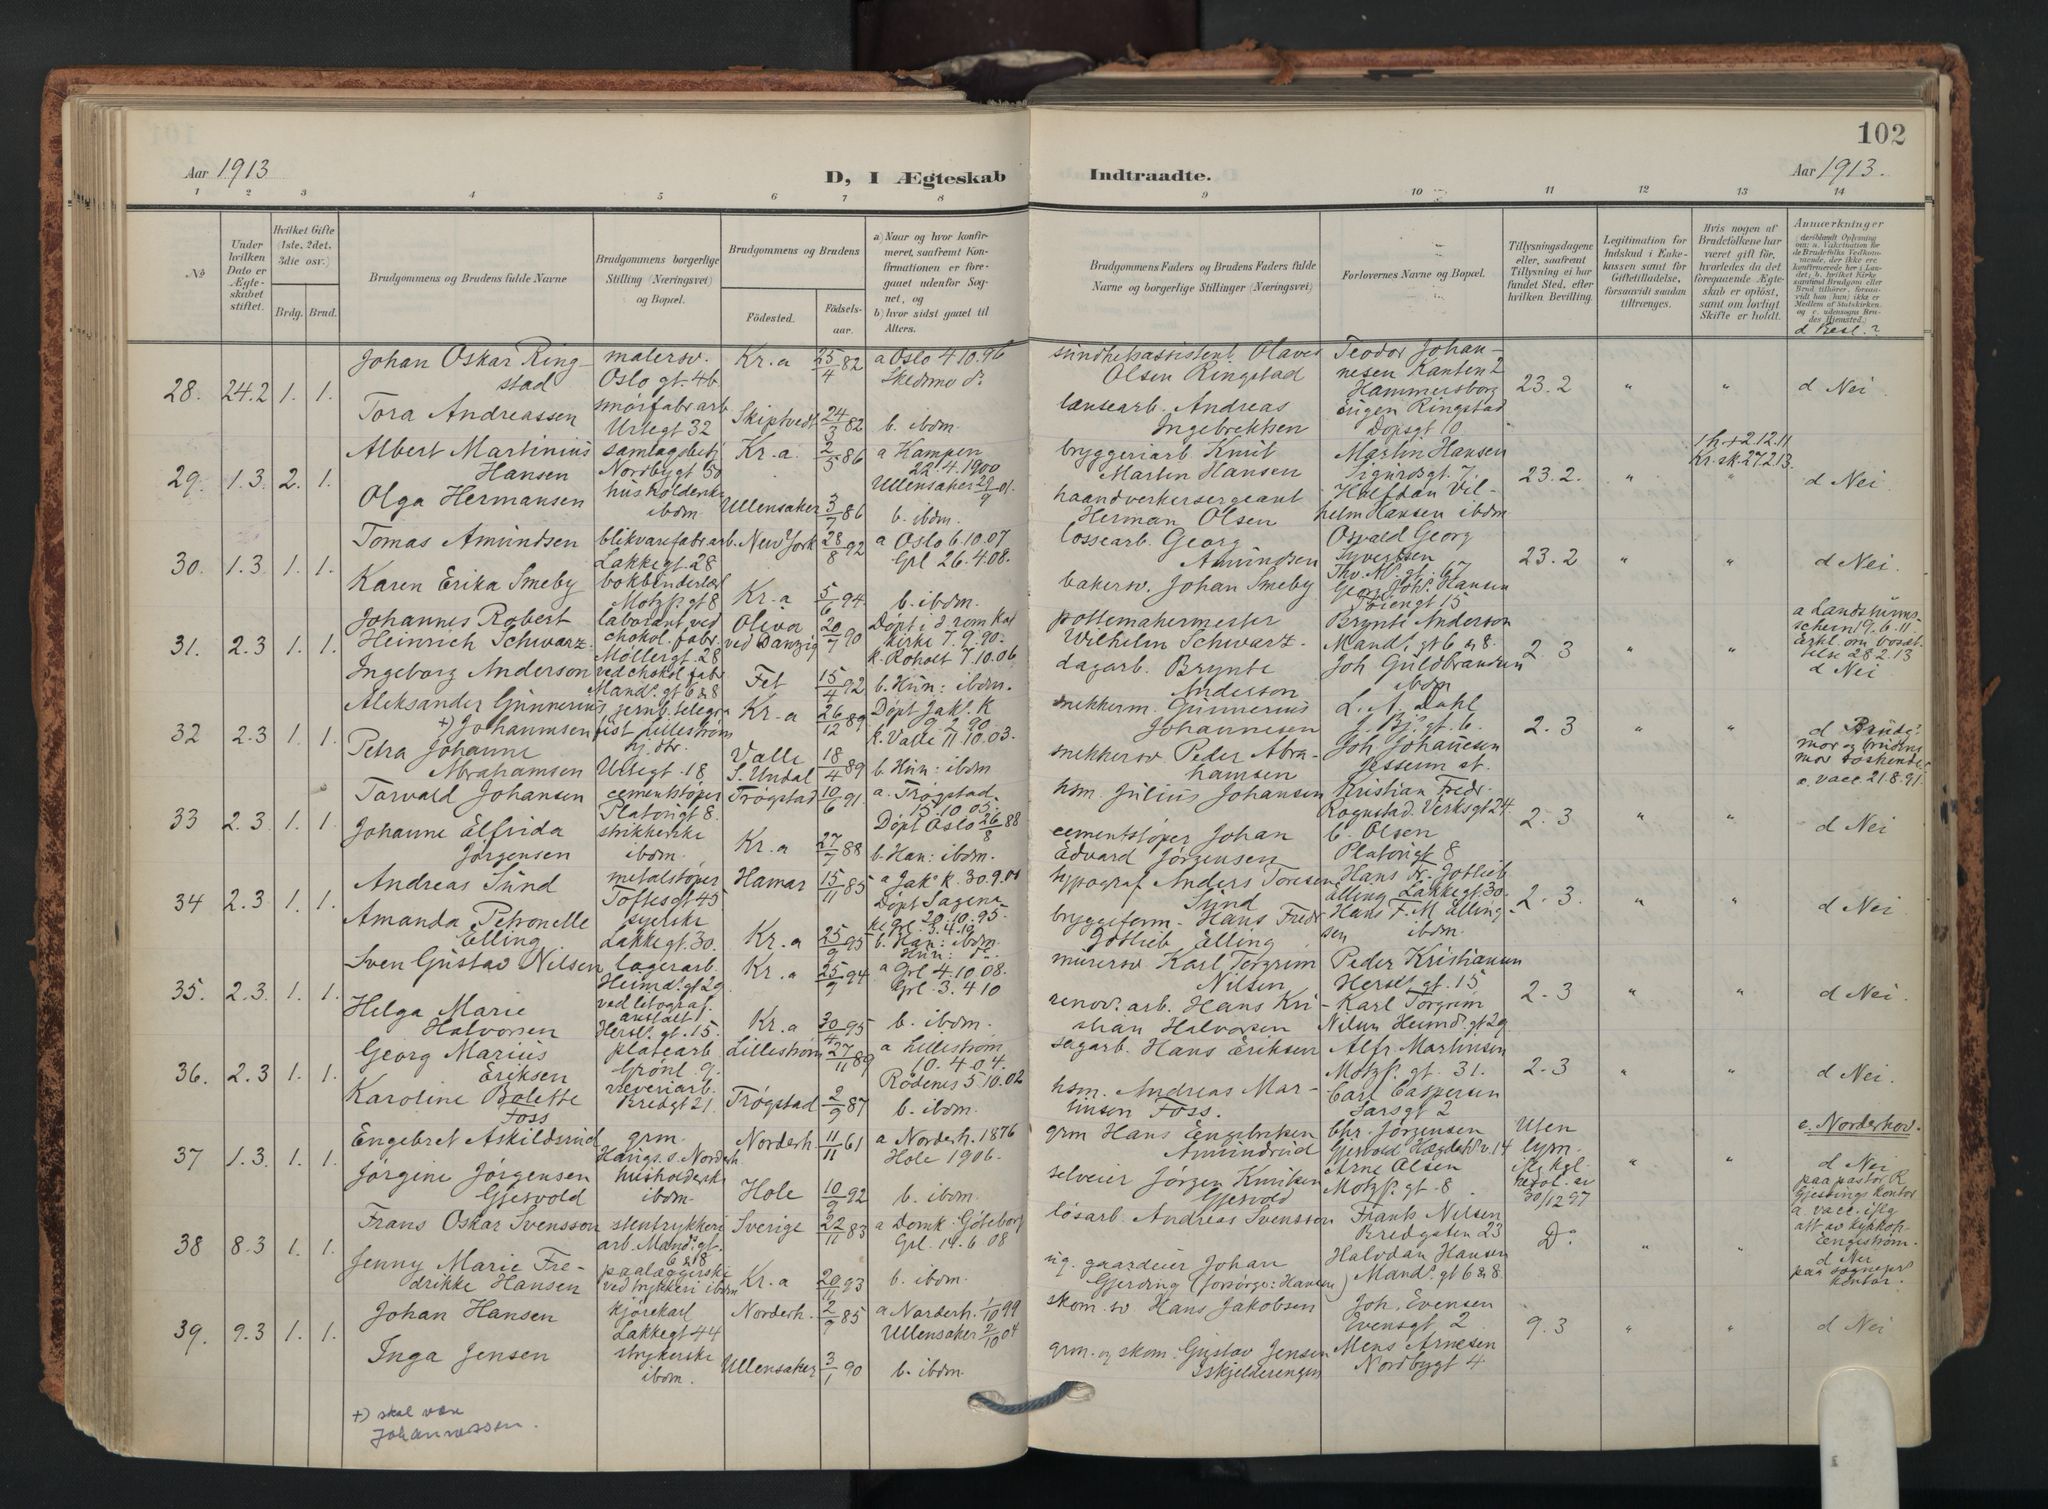 102
Aar 1913
D, I Ægteskab
Indtraadte.
Aar 1913.
1 2 3 4 5 6 7 8
9 10 11 12 13 14
No
Under hvilken Dato er Ægteskabet stiftet.
Hvilket Gifte (1ste, 2det, 3die osv.)
Brdg. Brud.
Brudgommens og Brudens fulde Navne
Brudgommens borgerlige Stilling (Næringsvei) og Bopæl.
Brudgommens og Brudens
Fødested.
Fødselsaar.
a) Naar og hvor konfirmeret, saafremt Konfirmationen er foregaaet udenfor Sognet, og
b) hvor sidst gaaet til Alters.
Brudgommens Faders og Brudens Faders fulde Navne og borgerlige Stillinger (Næringsvei)
Forlovernes Navne og Bopæl.
Tillysningsdagene eller, saafremt Tillysning ei har fundet Sted, efter hvilken Bevilling.
Legitimation for Indskud i Enkekassen samt for Giftetilladelse, forsaavidt saadan tiltrænges.
Hvis nogen af Brudefolkene har været gift før, hvorledes da det foregaaende Ægteskab er opløst, samt om lovligt Skifte er holdt.
Anmærkninger
28. 24.2 1. 1.
Johan Oskar Ringstad
malersv. Oslo gt. 4b
Kr.a 25/4 82
a Oslo 4.10.96
Skedsmo do
sundhetsassistent Olaves Olsen Ringstad
Teodor Johannesen Kanten 2 Hammersborg
23.2 " " d Nei
Tora Andreassen
smørfabrarb Urtegt 32
Skiptvedt 24/3 82
b. ibdm.
lænsearb. Andreas Ingebretsen
Eugen Ringstad Dopsgt 10
29. 1.3 2. 1.
Albert Martinius Hansen
samlagsbetj Nordbygt 50
Kr.a. 2/5 86
a Kampen 22.4.1900
bryggeriarb Knut Martin Hansen
Martin Hansen Sigurdsgt 7.
23.2. "
1 h. + 2.12.11
Kr. sk. 27.2.13.
d Nei
Olga Hermansen
husholderske ibdm
Ullensaker 3/7 86
Ullensaker 29/9 01.
b. ibdm.
haandverkersergeant Herman Olsen
Halfdan Vilhelm Hansen ibdm
30. 1.3 1. 1.
Tomas Amundsen
blikvarefabrarb. Lakkegt 28
New York 28/8 92
a Oslo 6.10.07
Grl 26.4.08.
lossearb. Georg Amundsen
Osvald Georg Syvertsen Thv. M. gt. 67
23.2 " " d Nei.
Karen Erika Smeby
Motzf. gt 8
Kr.a 5/6 94
b. ibdm.
bakersv. Johan Smeby
Georg Joh. Hansen Tøiengt 15
31. 2.3 1. 1.
Johannes Robert Heinrich Schwarz.
laborant ved chokol. fabr. Møllergt. 28
Oliva ved Danzig 20/7 90
Døpt i d rom kat kirke 7.9.90.
k. Roholt 7.10.06
pottemakermester Wilhelm Schwarz.
Brynte Anderson Mands. gt 6 & 8
2.3 " "
a Landsturmschein 19.6.11
Erkl. om bosættelse 28.2.13
d Nei
Ingeborg Anderson
ved chokol fabr Mands. gt 6 & 8
Fet 15/4 92
b. Hun: ibdm.
dagarb. Brynte Anderson
Joh Guldbrandsen ibdm
32 2.3 1. 1.
Aleksander Gunnerius +) Johannsen
jernb. telegrafist Lillestrøm
Kr.a 26/12 89
Døpt Jak. K 9.2.90.
k. Valle 11.10.03.
snekkerm. Gunnerius Johannesen
L. A. Dahl
2.3 " "
d Brudg. mor og brudens mor søskende.
a. vacc 21.8.91.
Petra Johanne Abrahamsen
Urtegt. 18
Valle S. Undal 18/4 89
b. Hun: ibdm
snekkersv. Peder Abrahamsen
Joh. Johannesen Jessheim st.
33 2.3 1. 1.
Torvald Johansen
cementstøper Platousgt 8.
Trøgstad 10/6 91
a. Trøgstad 15.10.05.
hsm. Julius Johansen
Kristian Fredr. Rognstad. Verksgt 24
2.3 " " d Nei
Johanne Elfrida Jørgensen
strikkerske ibdm.
Kr.a 27/7 88
Døpt Oslo 26/8 88
b. Han: ibdm.
cementstøper Johan Edvard Jørgensen
C. Olsen Platousgt 8
34 2.3 1. 1.
Andreas Sund
metalstøper Toftesgt 45
Hamar 15/11 85
a Jaks k. 30.9.01
typograf Anders Toresen Sund
Hans Fr. Gotlieb Elling Lakkegt 30.
2.3. " " d Nei
Amanda Petronelle Elling
syerske Lakkegt. 30.
Kr.a 25/9 95
Døpt Sagene 20.10.95.
k. Grl. 3.4.10
b. Han: ibdm. Hun: do.
bryggeform. Hans Fredr Gotlieb Elling
Hans F. M. Ellingsen ibdm.
35. 2.3. 1. 1.
Sven Gustav Nilsen
lagerarb. Heimds. gt 29
Kr.a 25/9 94
a Grl 4.10.08.
Grl. 3.4 10
murersv Karl Torgrim Nilsen
Peder Kristiansen Hersl. gt. 15
2.3 " " d Nei.
Helga Marie Halvorsen
ved litograf. anstalt Hersl. gt. 15.
Kr.a 30/4 95
b. ibdm.
renov. arb. Hans Kristian Halvorsen
Karl Torgrim Nilsen Heimds. gt 29
36. 2.3 1. 1.
Georg Marius Eriksen
platearb Grønl. 9.
Lillestrøm 27/11 89
a Lillestrøm 10.4.04.
sagarb. Hans Eriksen
Alfr. Martinsen Motzf. gt. 31.
2.3 " " d Nei.
Karoline Bolette Foss
veveriarb. Bredgt 21.
Trøgstad 2/9 87
Rødenes 5.10.02
b. ibdm.
hsm. Andreas Martinsen Foss.
Carl Caspersen Sarsgt 2
37 1.3. 1. 1.
Engebret Askildsrud
grm. Haugs. s. Norderh.
Norderh. 11/11 61
a Norderh. 1876
Hole 1906.
grm Hans Engebretsen Amundrud
Chr. Jørgensen Gjesvold Hægdehv. 14
Uten lysn. kgl. resol. av 30/12 97
" "
c. Norderhov.
d Nei
paa pastor R. Gjessings kontor
Jørgine Jørgensen Gjesvold
husholderske ibdm.
Hole 10/9 92
b. ibdm
selveier Jørgen Knutsen Gjesvold
Arne Olsen Motzf. gt. 8
38 8.3 1. 1.
Frans Oskar Svensson
stentrykkeriarb. Mands. gt. 6 & 8
Sverige 22/11 83
a Domk. Göteborg
Grl. 14.6 08
løsarb Andreas Svensson
Frants Nilsen Bredgaten 23
Do " "
a vacc. iflg att av
d Nei
Jenny Marie Fredrikke Hansen
paalæggerske ved trykkeri ibdm
Kr.a 20/11 93
b. ibdm
ug. gaardeier Johan Gjerding (forsørge: Hansen)
Halvdan Hansen Mands. gt 6 & 8.
39. 9.3 1. 1.
Johan Hansen
kjørekarl Lakkegt 44
Norderh. 2/9 85
a Norderh. 1/10 99
Ullensaker 2/10 04
skom. sv Hans Jakobsen
Joh. Evensen Evensgt 2
9.3 " " d Nei
Inga Jensen
strykerske ibdm.
Ullensaker 3/1 90
b. ibdm.
grm. og skom. Gustav Jensen Iskjelderengen
Mens Arnesen Nordbygt 4
+) skal være
Johannessen.